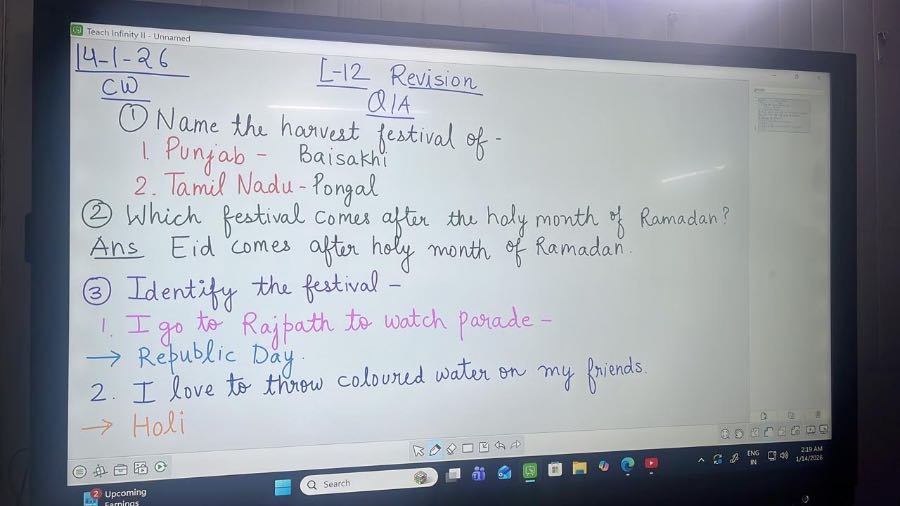 Teach Infinity II - Unnamed
14-1-26
L-12 Revision
CW
Q/A
① Name the harvest festival of -
1. Punjab - Baisakhi
2. Tamil Nadu - Pongal
② Which festival comes after the holy month of Ramadan?
Ans Eid comes after holy month of Ramadan.
③ Identify the festival -
1. I go to Rajpath to watch parade -
→ Republic Day.
2. I love to throw coloured water on my friends.
→ Holi
2 Upcoming
Earnings
Search
ENG
IN
2:19 AM
1/14/2026